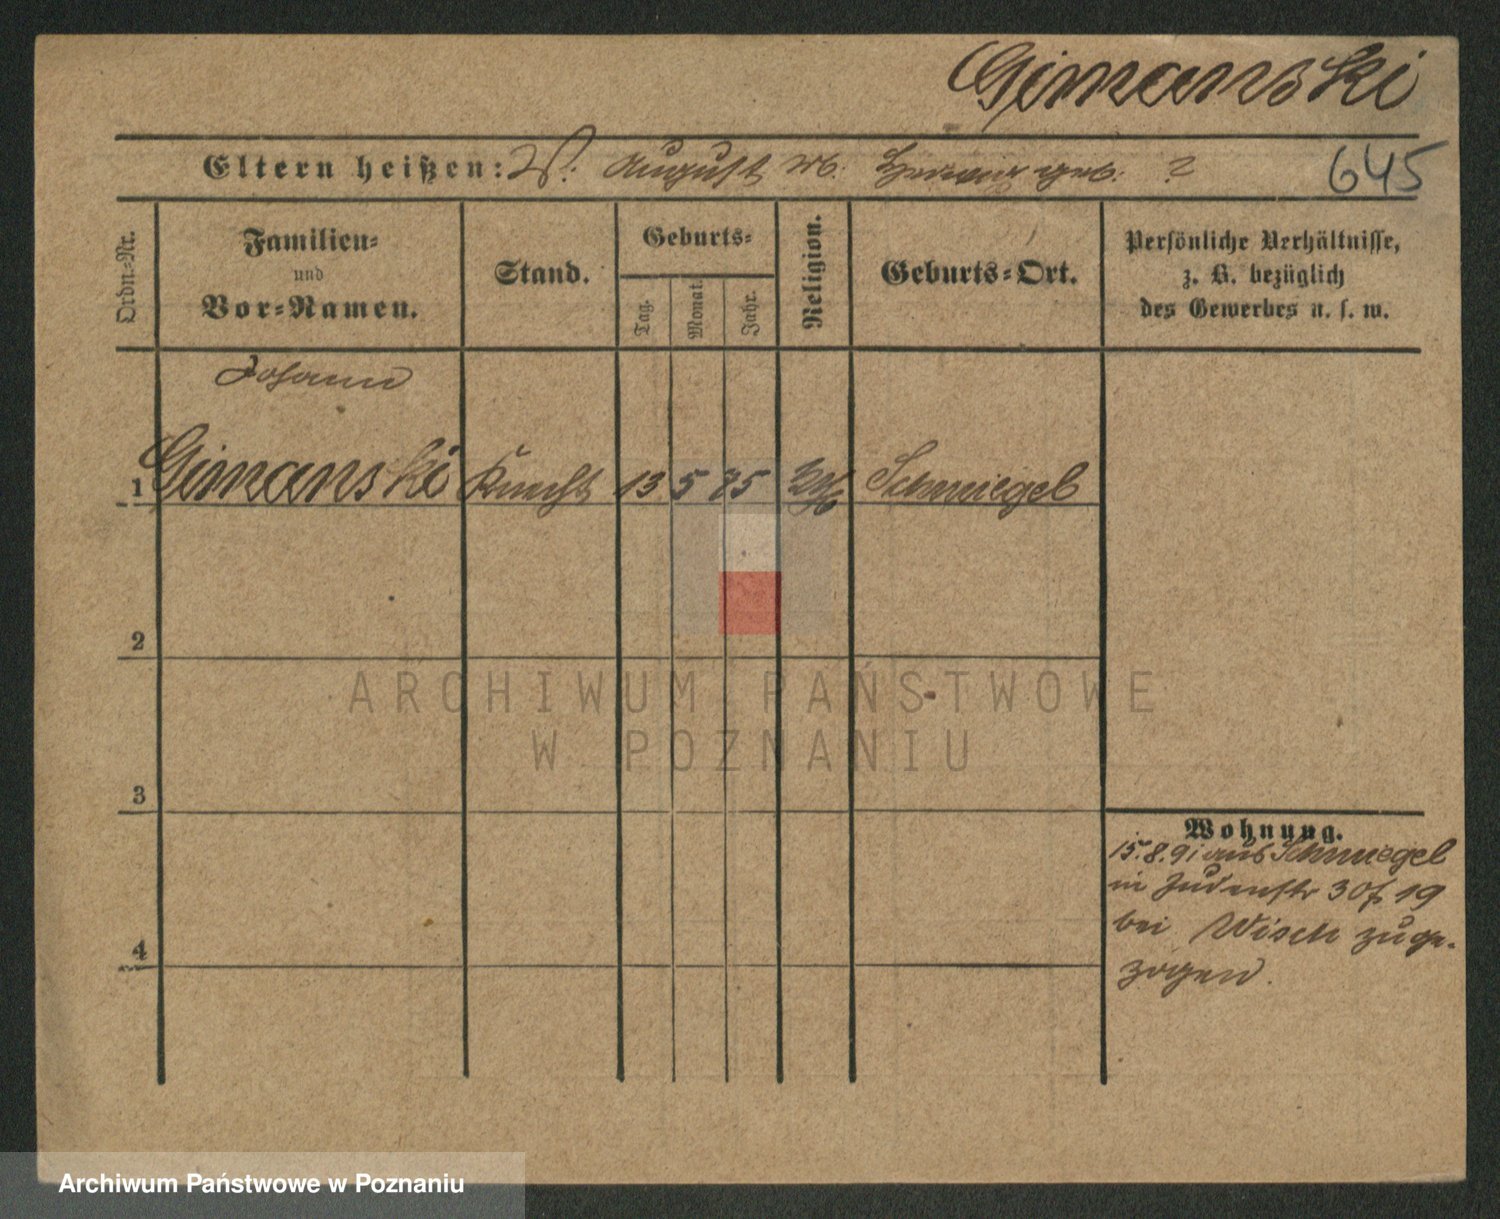 Gimanski
Eltern heißen: V. August M. geb. ?
645
Ordn=Nr.
Familien=
und
Vor=Namen.
Stand.
Geburts=
Tag.
Monat.
Jahr.
Religion.
Geburts=Ort.
Persönliche Verhältnisse,
z. B. bezüglich
des Gewerbes u. s. w.
Johann
1 Gimanski Knecht 13 5 75 Schmiegel
2
3
4
Wohnung.
15.8.91 aus Schmiegel
in Judenstr 30 19
bei Wisch zuge-
zogen.
ARCHIWUM PAŃSTWOWE
W POZNANIU
Archiwum Państwowe w Poznaniu